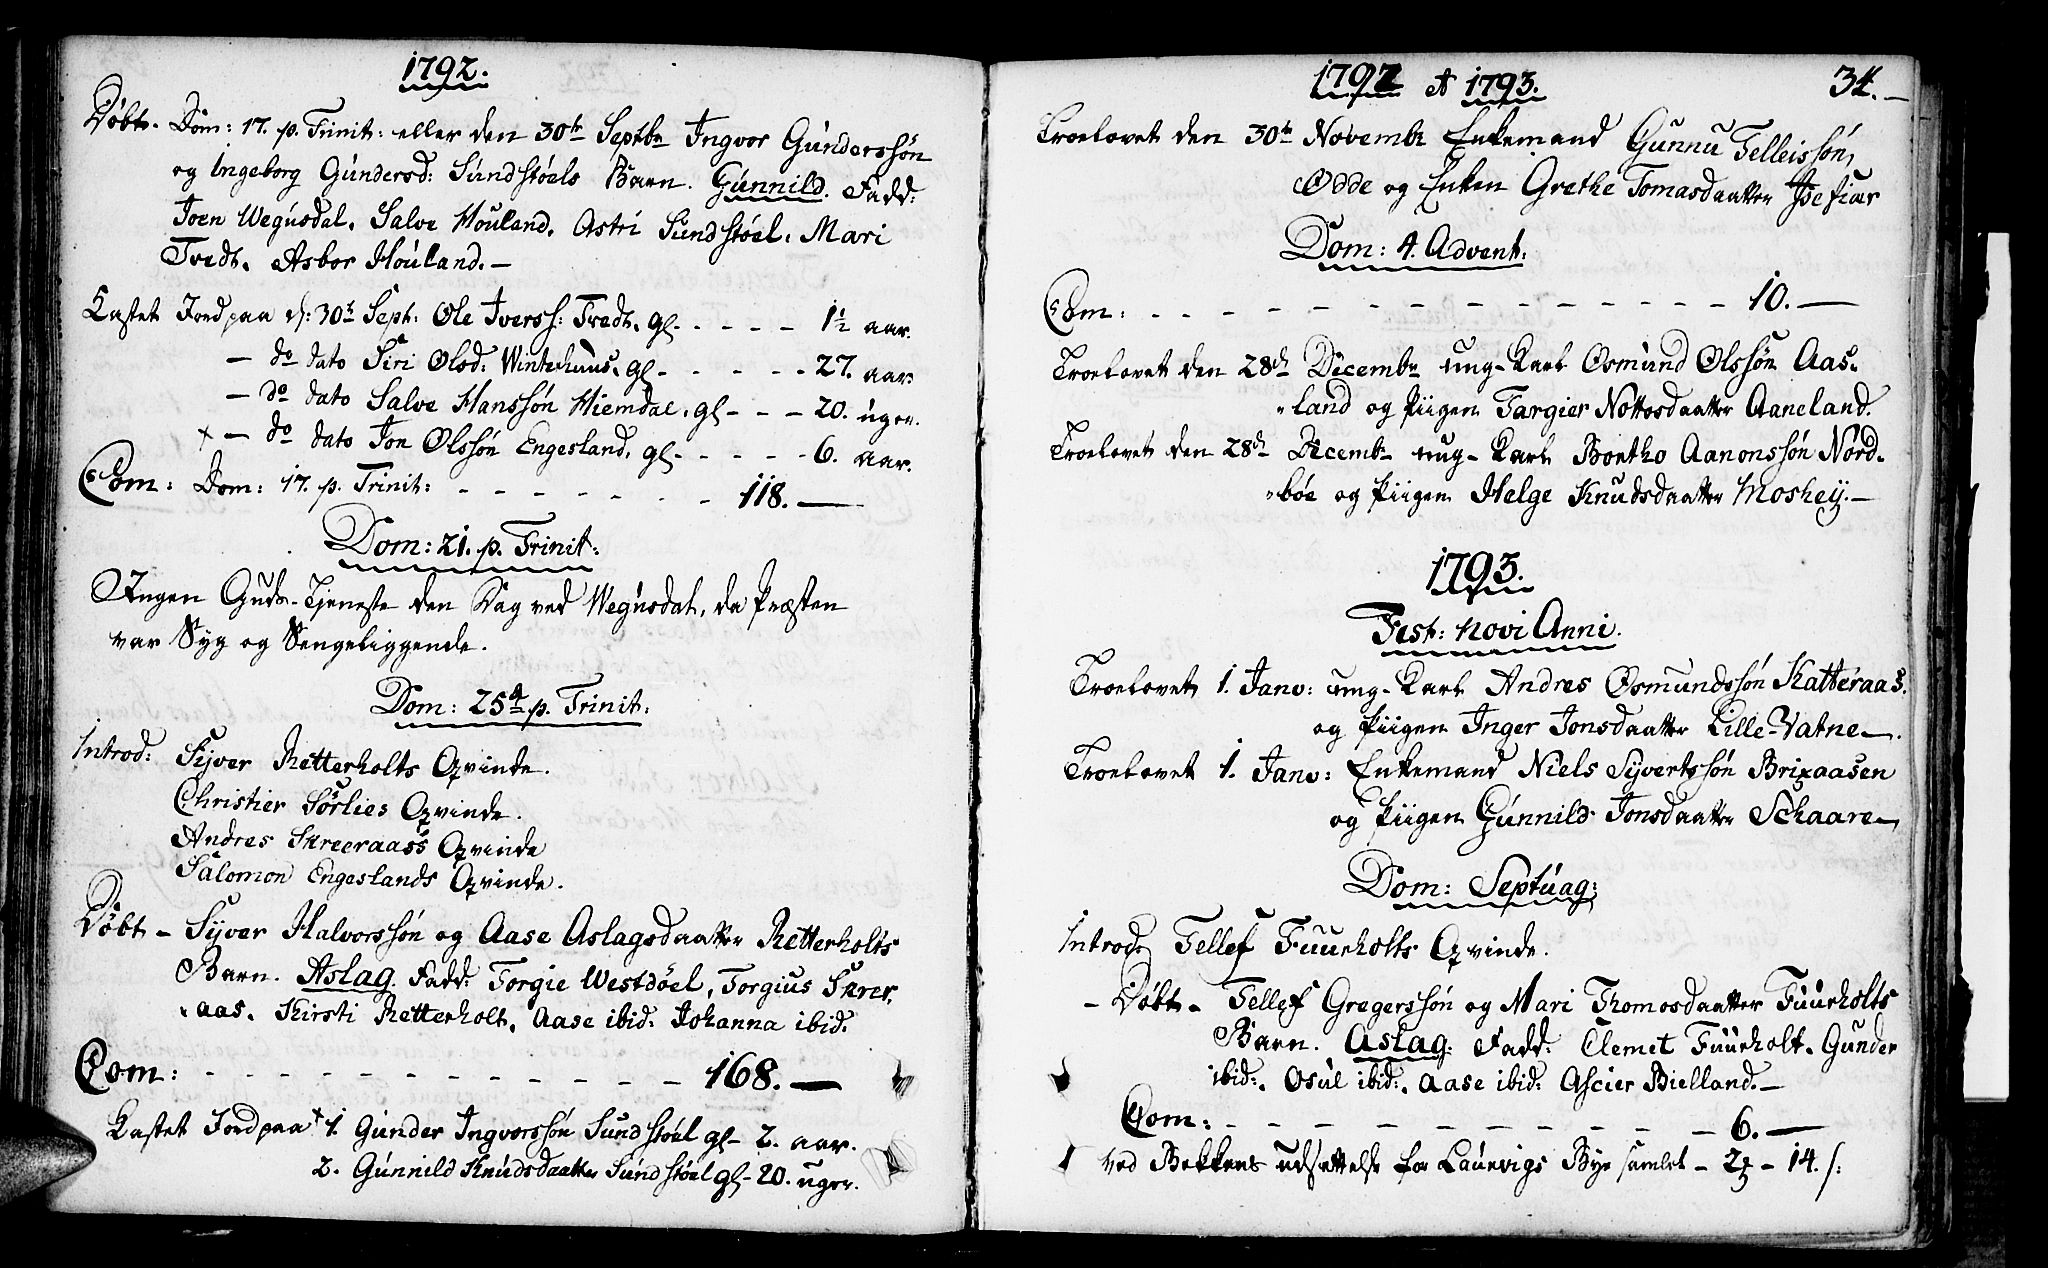 1792.
Døbt. Dom: 17. p. Trinit: eller den 30te Septbr Ingvor Gúnderssøn
og Ingeborg Gúndersd: Súndstøels Barn. Gúnnild. Fadd:
Joen Wegusdal. Salve Houland. Astri Sundstøel. Mari
Tredt. Asbor Houland.—
Kastet Jord paa d: 30t Sept: Ole Iverss: Tredt. gl - - - - - 1½ aar.
— do dato Siri Olsd: Winterhuus. gl - - - - - 27. aar.
— do dato Salve Hanssøn Hiemdal. gl - - - 20. uger.
+ — do dato Jon Olssøn Engesland. gl - - - - - 6. aar.
Com: Dom: 17. p. Trinit: - - - - - - - 118.—
Dom: 21. p. Trinit:
Ingen Guds-Tjeneste den Dag ved Wegusdal, da Præsten
var Syg og Sengeliggende.
Dom: 25de p. Trinit:
Introd: Syver Retterholts Qvinde.
Christier Sørlies Qvinde.
Andres Skreeraass Qvinde
Salomon Engeslands Qvinde.
Døbt - Syver Halvorssøn og Aase Aslagsdaatter Retterholts
Barn. Aslag. Fadd: Torgie Westdøel, Torgius Skrer,
aas. Kirsti Retterholt. Aase ibid: Johanna ibid:
Com: - - - - - - - - - - - - 168.—
Kastet Jord paa + 1. Gunder Ingvorssøn Sundstøel gl - 2. aar.
2. Gúnnild Knúdsdaatter Sundstøel gl - 20. uger.
1792 & 1793. 34.—
Troelovet den 30te Novembr Enkemand Gunnu Telleissøn
Odde og Enken Grethe Tomasdaatter Isefiær
Dom: 4. Advent:
Com: - - - - - - - - - - - - - 10.—
Troelovet den 28de Decembr ung-Karl Osmund Olssøn Aas-
land og Piigen Targier Nottosdaatter Aaneland.
Troelovet den 28de Decembr ung-Karl Bortho Aanonssøn Nord-
bøe og Piigen Helge Knudsdaatter Moshey.—
1793.
Fest: Novi Anni.
Troelovet 1. Janv: ung-Karl Andres Osmundssøn Katteraas.
og Piigen Inger Jonsdaatter Lille-Vatne—.
Troelovet 1. Janv: Enkemand Niels Syvertssøn Brixaasen
og Piigen Gúnnild Jonsdaatter Schaare—
Dom: Septuag:
Introd: Tellef Fuurholts Qvinde.
- Døbt - Tellef Gregerssøn og Mari Thomosdaatter Fuurholts
Barn. Aslag: Fadd: Clemet Fuurholt. Gunder
ibid:. Osul ibid:. Aase ibid: Ascier Bielland.—
Com: - - - - - - - - - - 6.—
Ved Bekkens udsettelse for Laurvigs Bye samlet - 2 - 14. s: